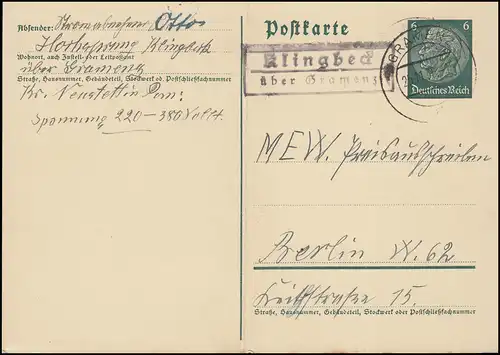 Absender: Stromabnehmer Otto
Klingbeck
Wohnort, auch Zustell- oder Leitpostamt
über Gramenz
Straße, Hausnummer, Gebäudeteil, Stockwerk od. Postschließfachnummer
Kr. Neustettin Pom.
Spannung 220-380 Volt.
Postkarte
Klingbeck
über Gramenz
GRAM
6 6
Deutsches Reich
MEW. Preisausschreiben
Berlin W. 62
15.
Straße, Hausnummer, Gebäudeteil, Stockwerk oder Postschließfachnummer